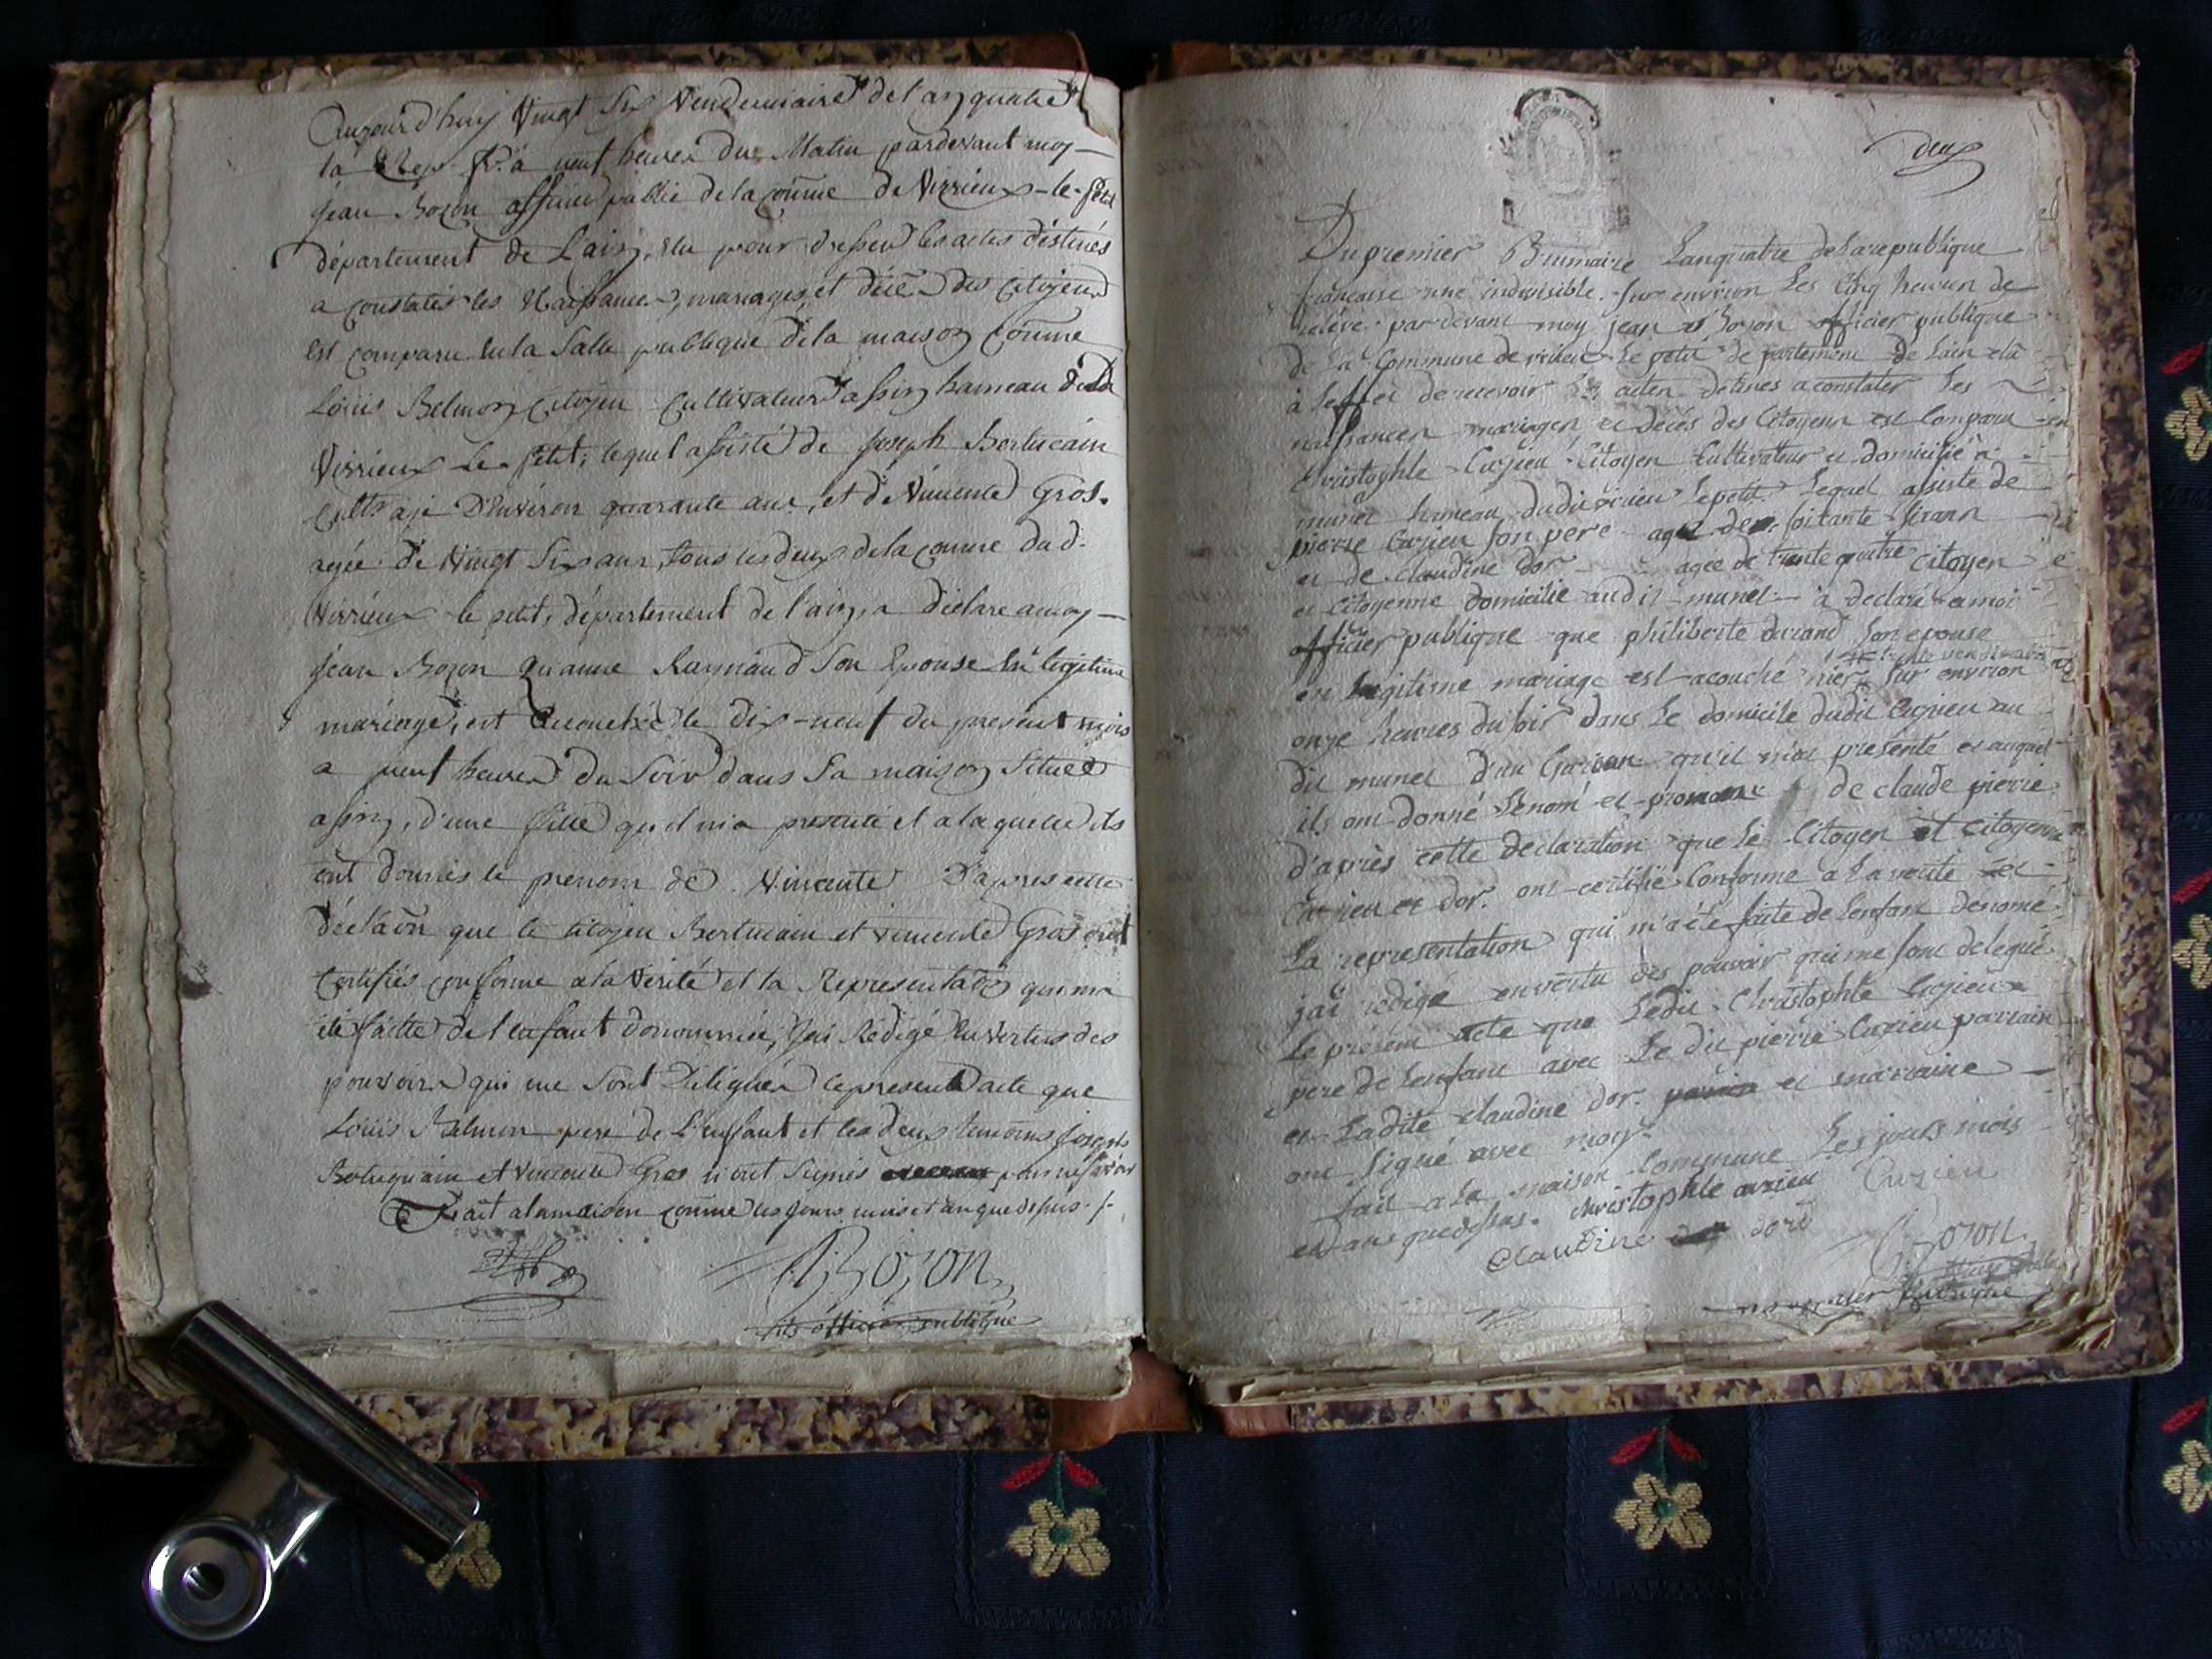 Aujourd'huy Vingt Six Vendemiaire de l'an quatre
la Rep. fr. a neuf heures du Matin pardevant moy
jean Bozon officier public de la coñue de Virrieux-le-petit
département de L'ain, elu pour dresser les actes déstinés
a constater les Naissances, mariages et décès des Citoyens
est comparu en la Salle publique de la maison coñune
Louis Belmon Citoyen Cultivateur assin hameau dudt
Virrieux Le petit, lequel assisté de joseph
cultr agé D'environ quarante ans, et de Vincente Gros.
agée de Vingt Six ans, tous les deux de la coñue dud.
Virrieux le petit, département de l'ain, a déclaré amoy
jean Bozon qu'anne Raymand Son Epouse En légitime
mariage, est accouchée le dix-neuf du present mois
a neuf heures du Soir dans Sa maison Située
assin, d'une fille qu'il m'a presenté et a laquelle ils
ont donnés le prenom de Vincente D'apres cette
déclaõn que le citoyen et vincente Gros ont
Certifiés conforme a la Vérité et la Representaõn qui m'a
été faitte de l'enfant dénommée, j'ai Redigé En vertus des
pouvoirs qui me Sont Délégués le present acte que
Louis Belmon pere de L'enfant et les deux temoins joseph
et vincente Gros n'ont Signés pour ne savoir
Fait a la maison coñune les jours, mois et an que depus
Bozon
officier publique
deux
Du premier Brumaire Lanquatre de la republique
francaise une indivisible. sur environ Les Cinq heures de
relévé par devant moy jean Bozon officier publique
de La Commune de virieu Le petit departement de Lain elû
à leffet de recevoir Les actes detines a constater Les
naissances mariages et décés des Citoyens est Comparu
Christophle Cuzieu Citoyen Cultivateur et domicilié a
munet hameau dudit virieu Le petit Lequel assiste de
pierre Cuzieu Son pere agé de soixante sixans
et de claudine dor agee de trente quatre citoyen
et Citoyenne domicilie audit munet a declaré amoi
officier publique que philiberte durand Son epouse
trente vendemiaire
en Legitime mariage est acouché hier sur environ
onze heures du soir dans Le domicile dudit Cuzieu au
dit munet d'un Garcon qu'il m'at presénté et auquel
ils ont donné Lenom et prenom de claude pierre
d'après cette déclaration que Le Citoyen et Citoyenne
Cuzieu et dor. ont certifié Conforme a La verite et
La representation qui m'a été faite de Lenfant denomé
jai redigé en vertu des pouvoir qui me sont delegué
Le present acte que Ledit Christophle Cuzieu
pere de Lenfant avec Le dit pierre Cuzieu parrain
et Ladite claudine dor. et marraine
ont Signé avec moy.
fait a La maison Commune Les jours mois
et ans quedessus. christophle cuzieu Cuzieu
Claudine dord
Bozon